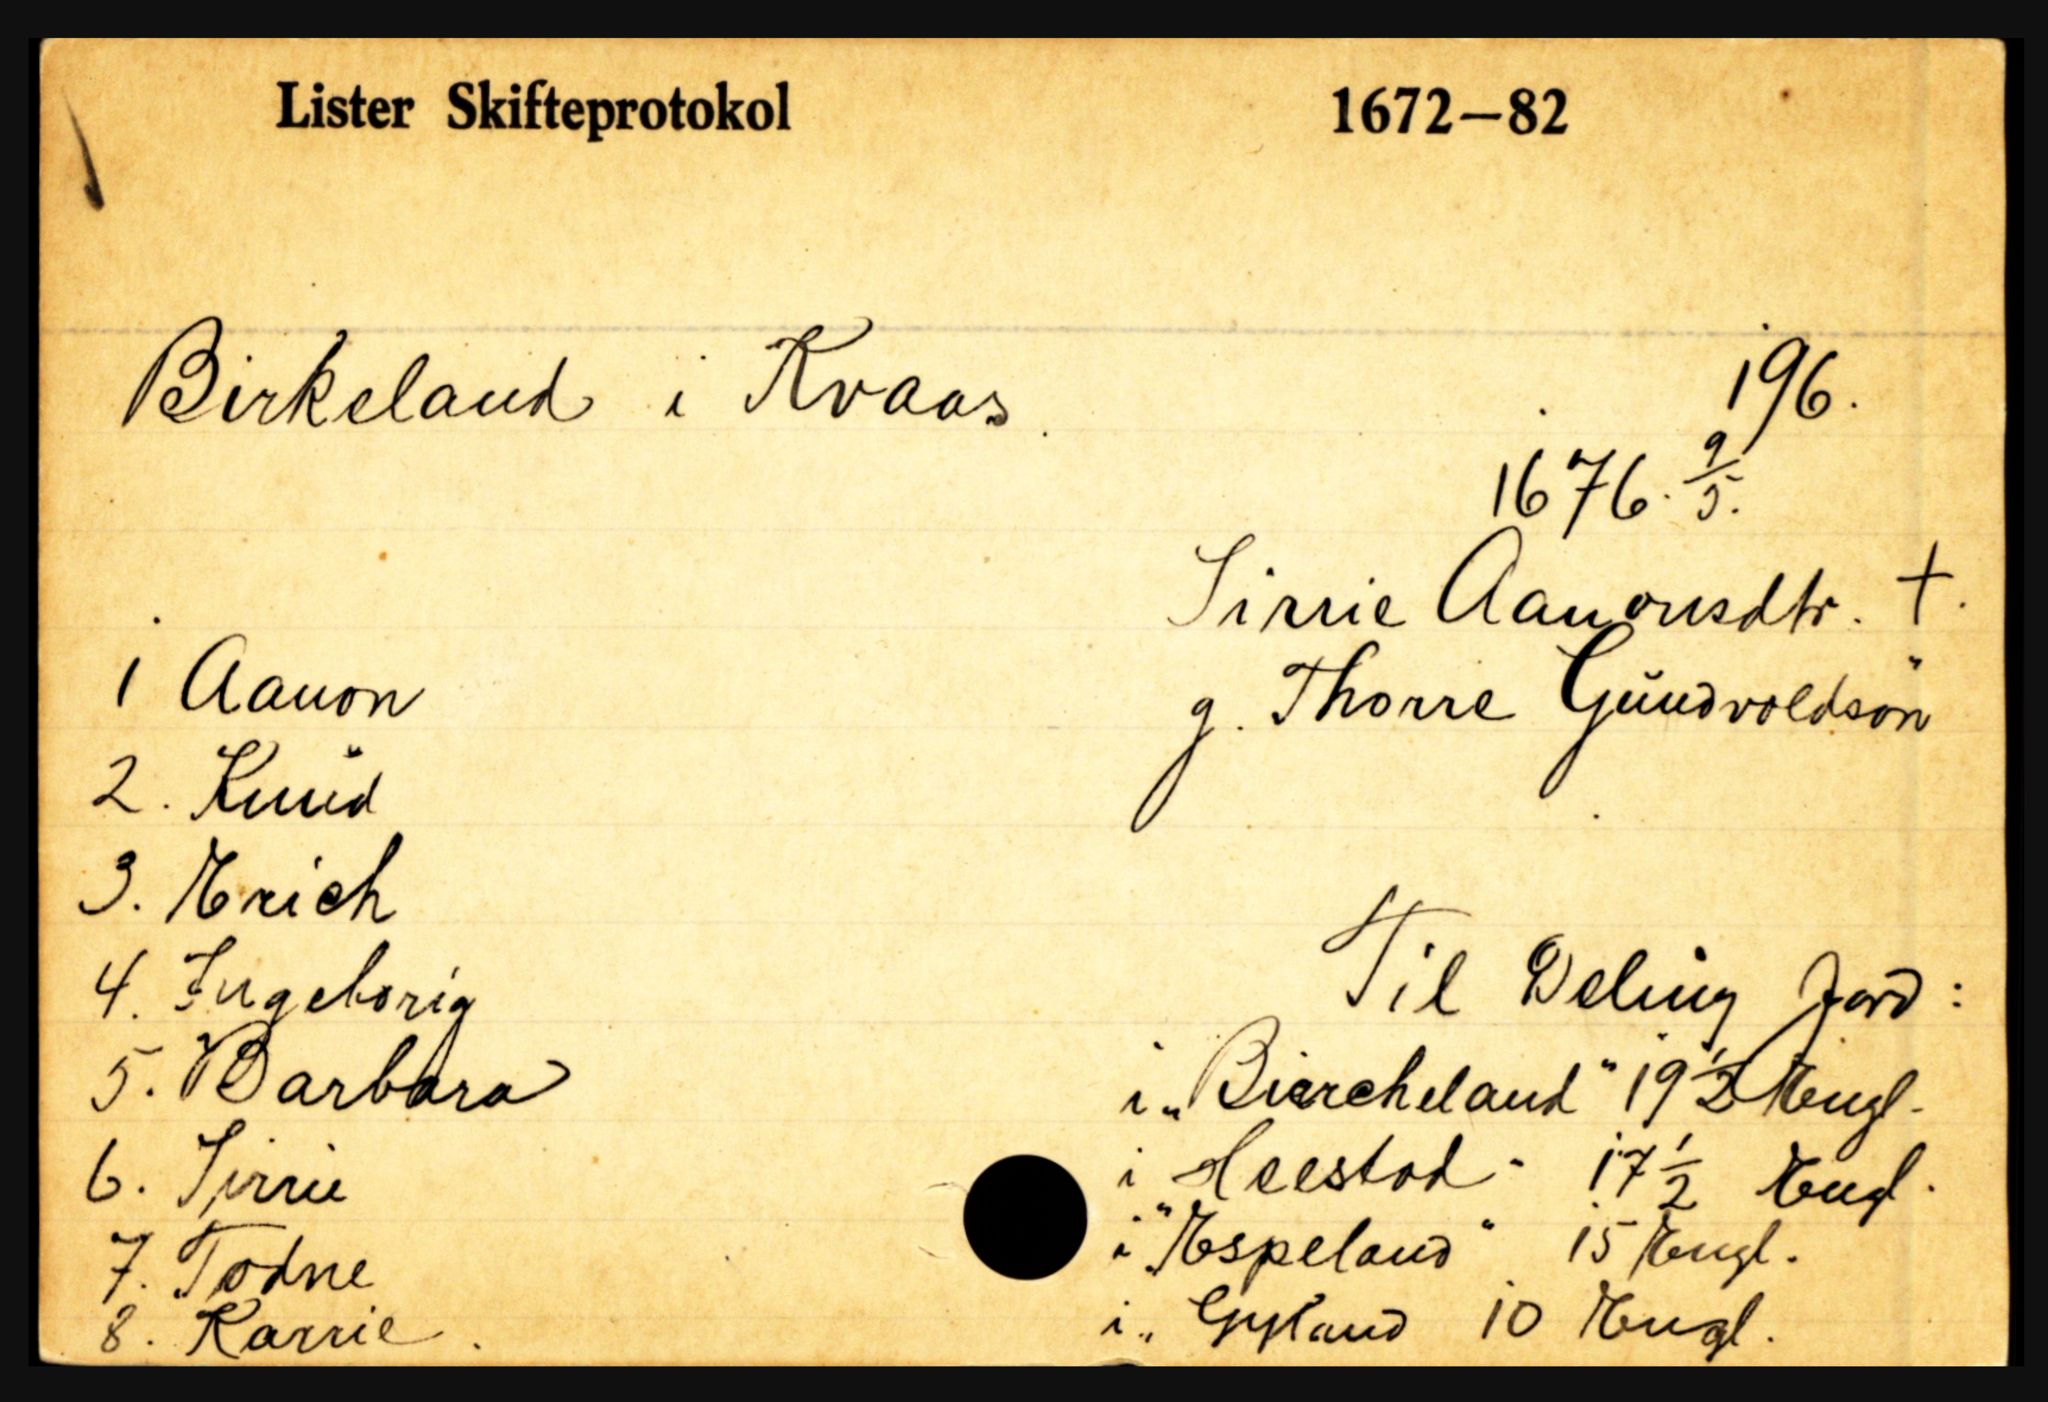 Lister Skifteprotokol 1672–82
Birkeland i Kvaas.
196.
1676. 9/5.
Sirrie Aanonsdtr. †.
g. Thorre Gŭndvoldsön
1 Aanon
2. Knŭd
3. Erich
4. Ingeborig
5. Barbara
6. Sirrie
7. Todne
8. Karrie.
Til Deling Jord:
i „Biercheland" 19 1/2 Engl.
i Heestod - 17 1/2 Engl.
i „Espeland" 15 Engl.
i „ Gyland 10 Engl.